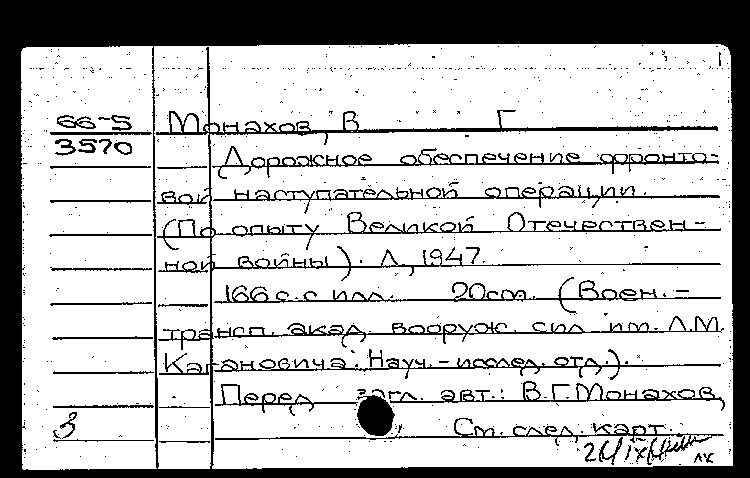 66-5 Монахов, В Г
3570 Дорожное обеспечение фронто-
вой наступательной операции.
(По опыту Великой Отечествен-
ной войны). Л, 1947.
166 с. с илл. 20 см. (Воен.-
трансп. акад. вооруж. сил им. Л.М.
Кагановича. Науч.-исслед. отд.).
Перед загл. авт.: В.Г. Монахов,
3 См. след. карт.
лк